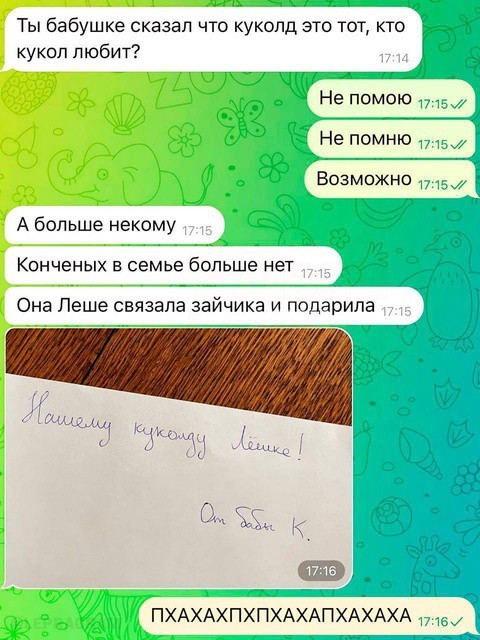 Ты бабушке сказал что куколд это тот, кто
кукол любит?
17:14
Не помою 17:15
Не помню 17:15
Возможно 17:15
А больше некому 17:15
Конченых в семье больше нет 17:15
Она Леше связала зайчика и подарила 17:15
Нашему куколду Лёшке!
От бабы К.
17:16
ПХАХАХПХПХАХАПХАХАХА 17:16